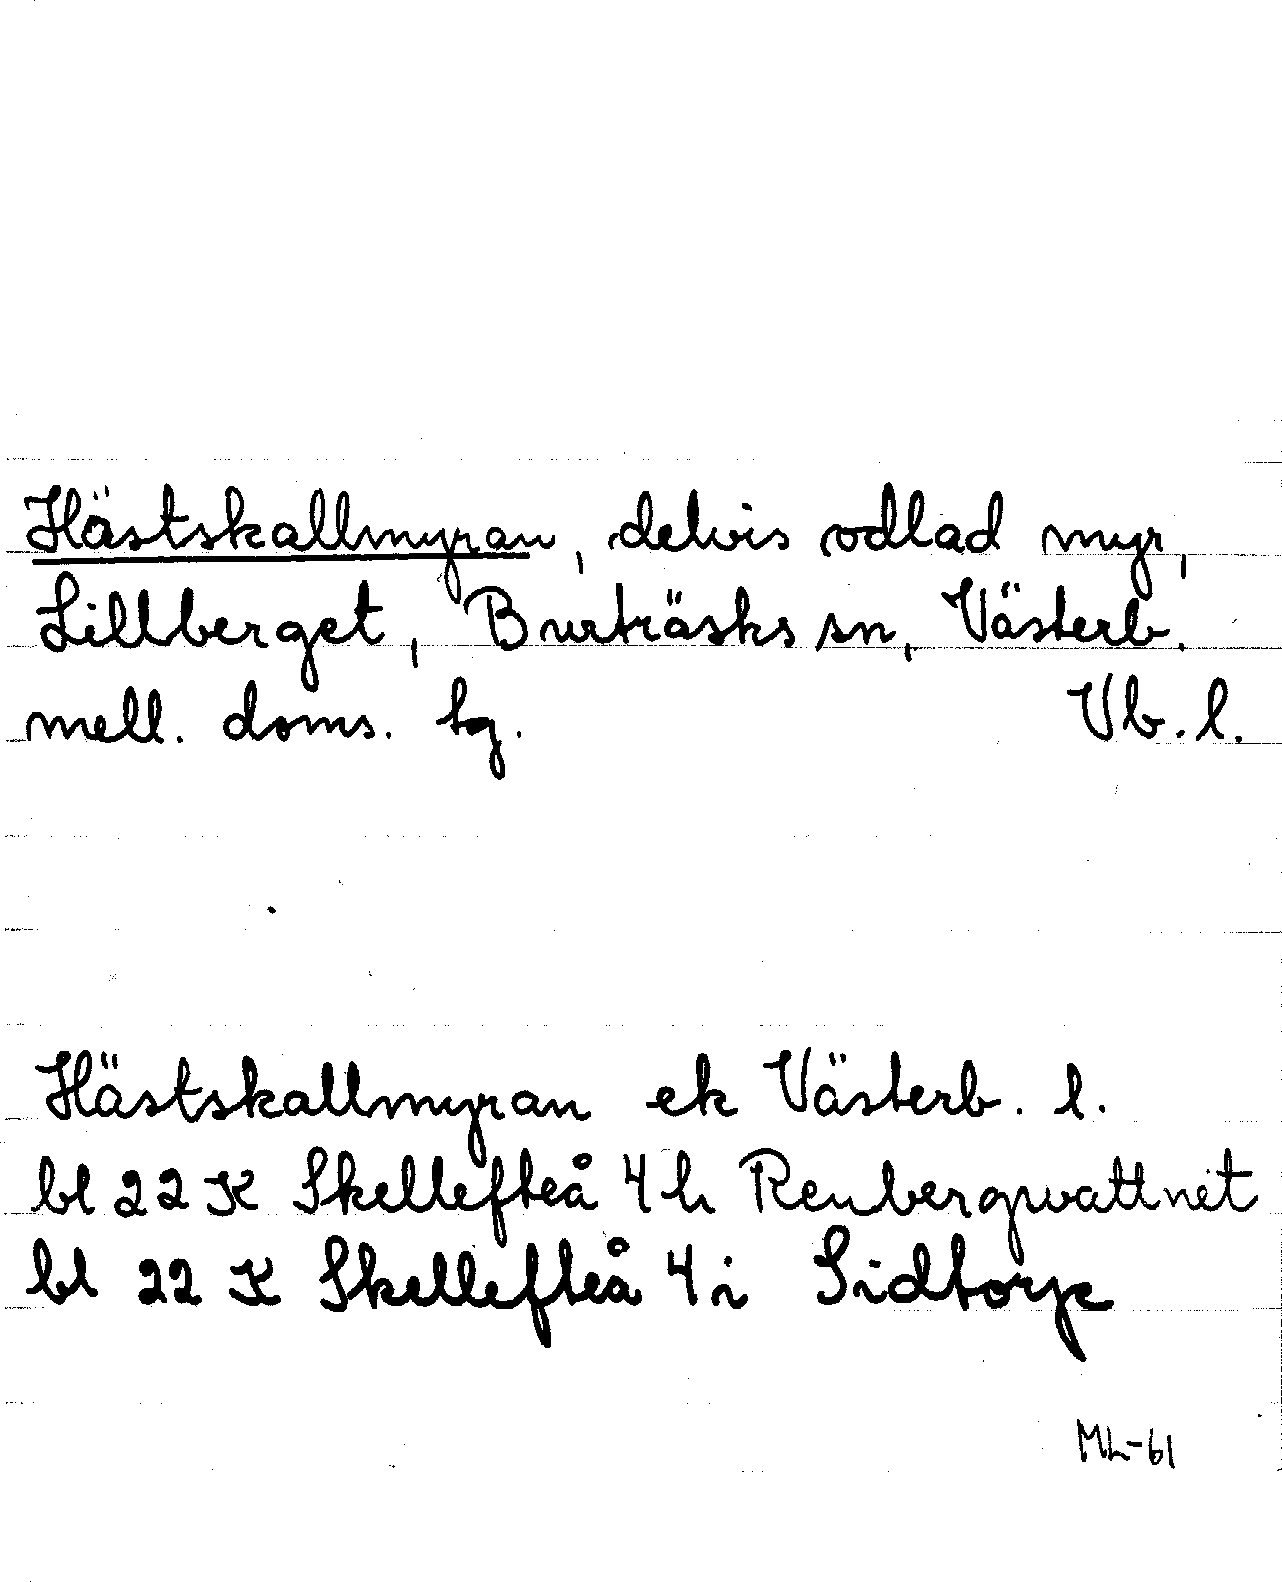 Hästskallmyran, delvis odlad myr,
Lillberget, Burträsks sn, Västerb.
mell. doms. tg. Vb. l.
Hästskallmyran ek Västerb. l.
bl 22 K Skellefteå 4 h Renbergsvattnet
bl 22 K Skellefteå 4 i Sidtorp
ML-61